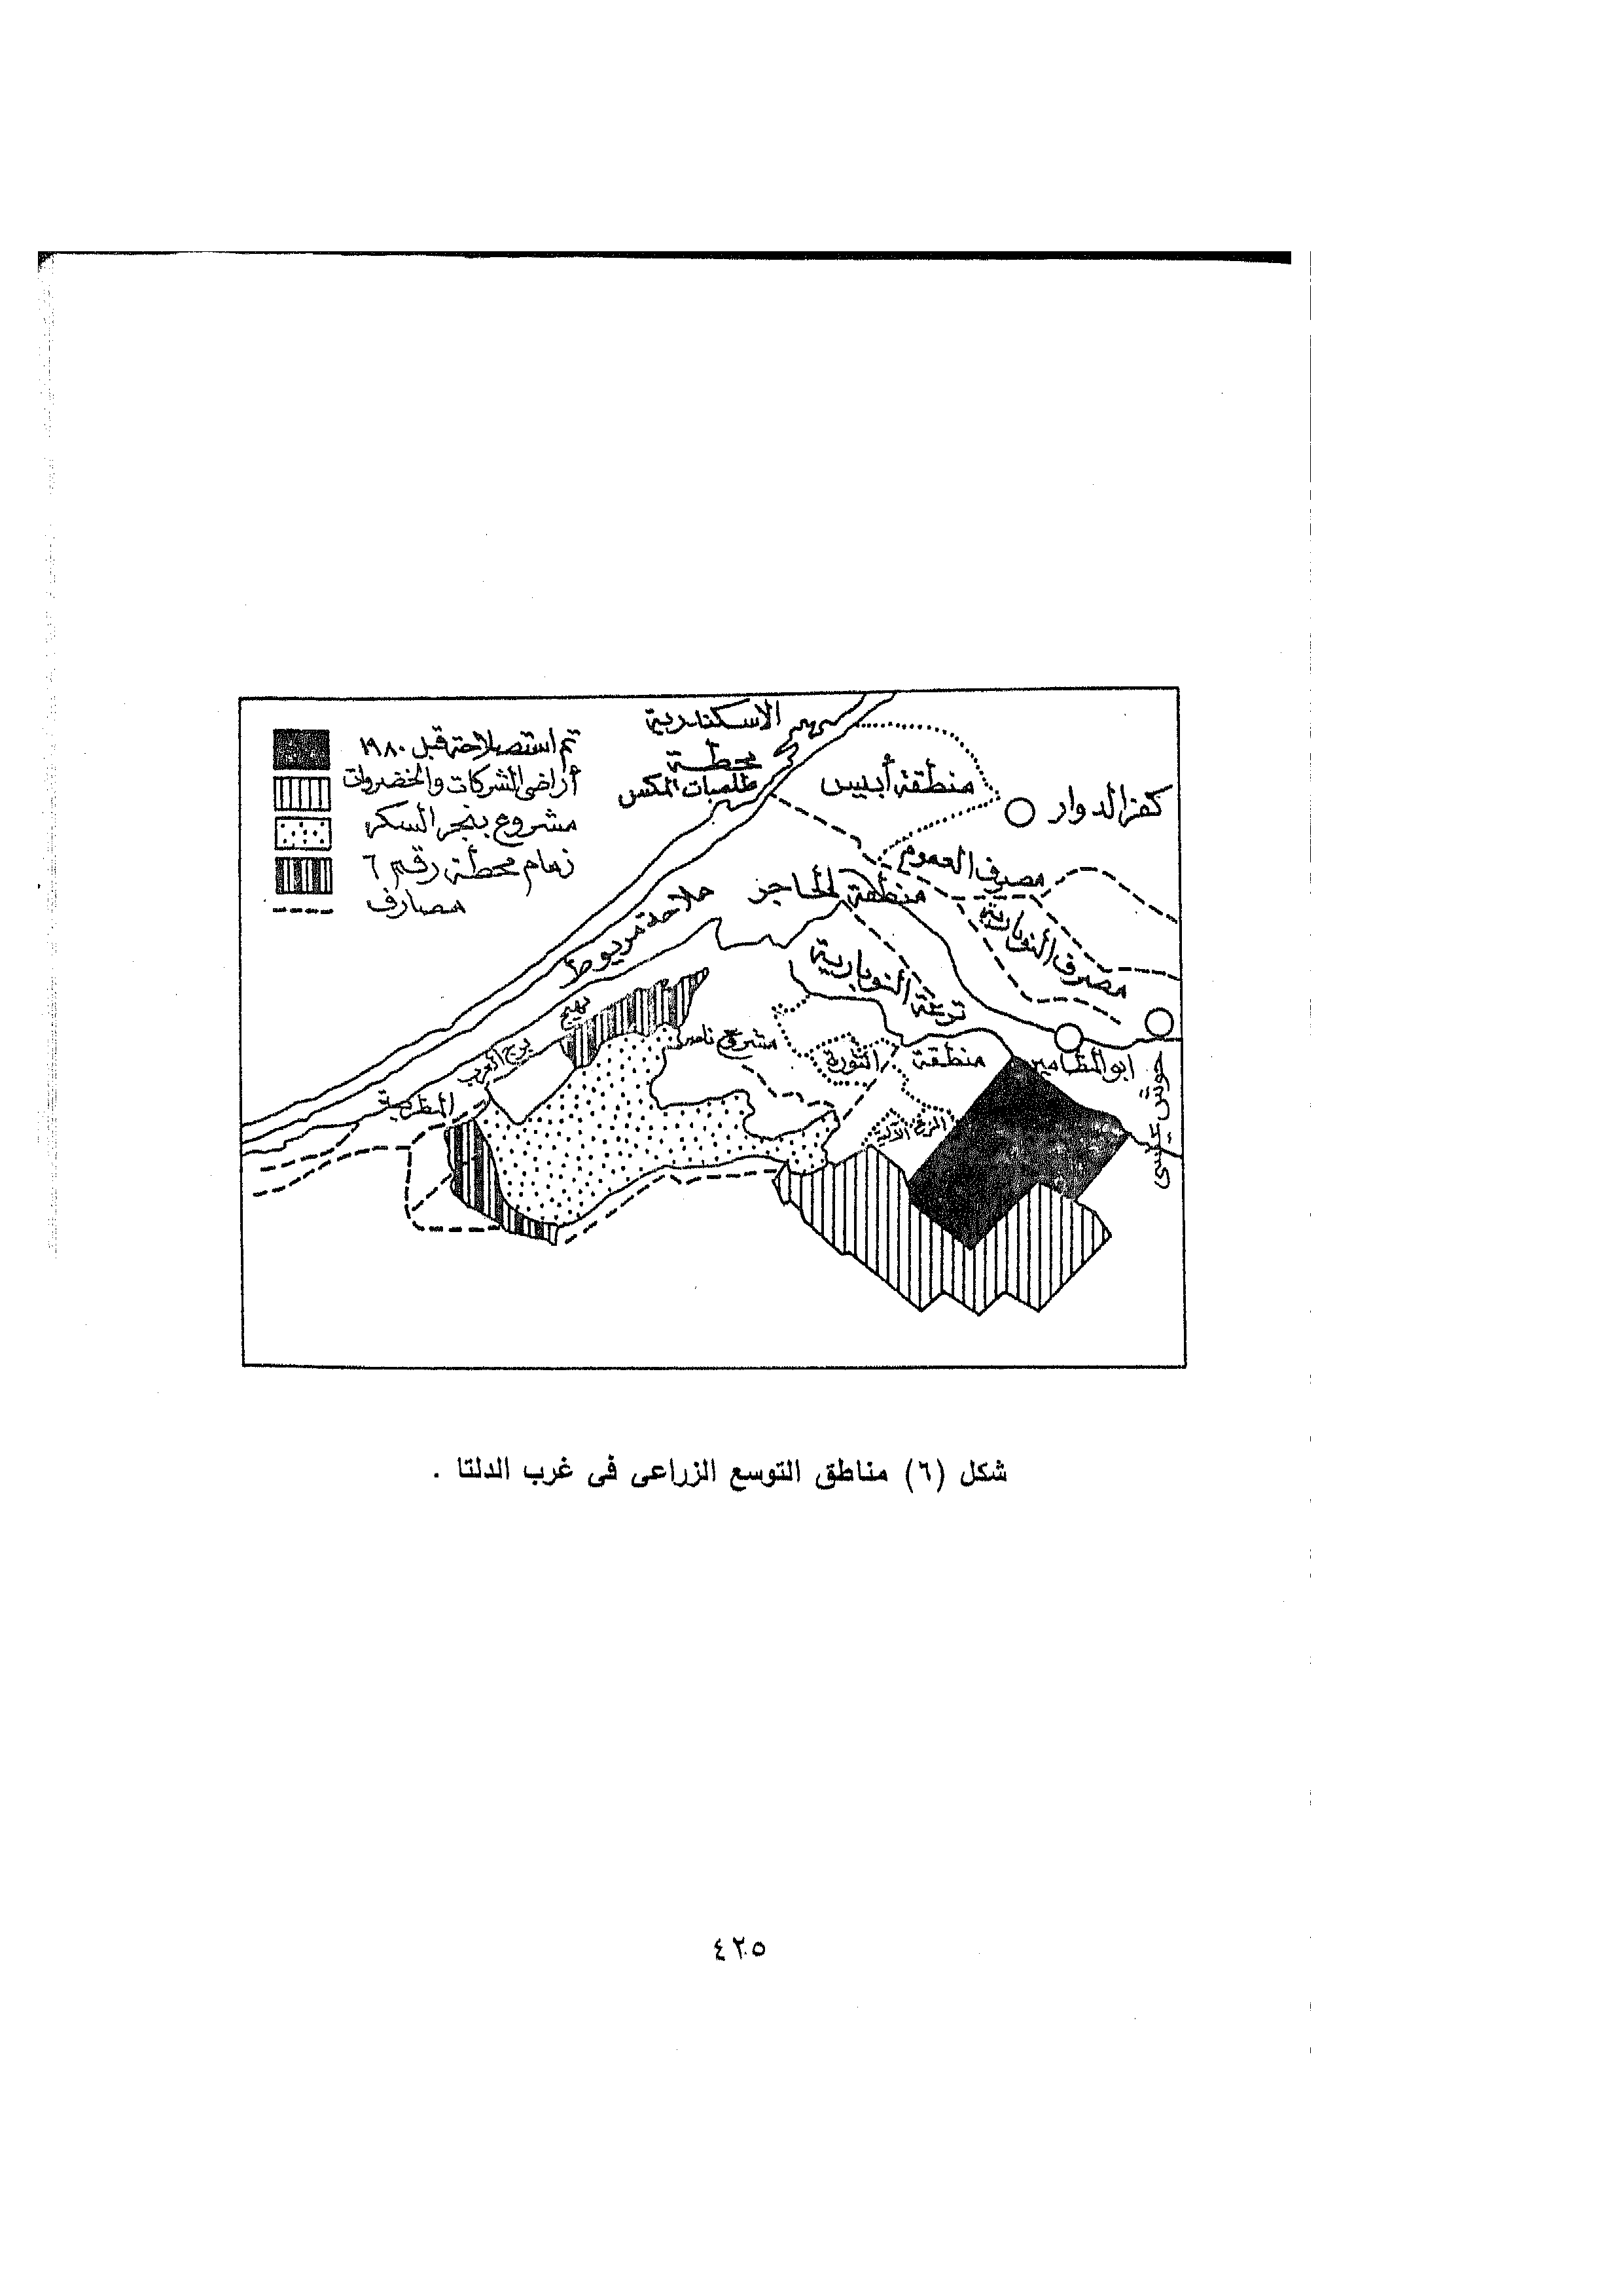 تم استصلاحة قبل ١٩٨٠
أراضى الشركات والخضروات
مشروع بنجر السكر
زمام محطة رقم ٦
مصارف
الاسكندرية
محطة
طلمبات المكس
منطقة أبيس
كفر الدوار
مصرف العموم
منطقة الحاجز
ملاحة مريوط
مصرف النوبارية
ترعة النوبارية
بهيج
برج العرب
مشروع ناصر
منطقة
الثورة
ابو المطامير
حوش عيسى
المزرعة الآلية
شكل (٦) مناطق التوسع الزراعى فى غرب الدلتا .
٤٢٥